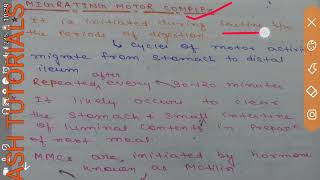 MIGRATING MOTOR COMPLEX
It is initiated during b/w
the periods of digestion
↳ cycles of motor activity
migrate from stomach to distal
ileum
after
Repeated every 90-120 minutes
It likely occurs to clear
the stomach + small intestine
of luminal contents in
of next meal.
MMCs are initiated by hormone
known as Motilin
ASH TUTORIALS